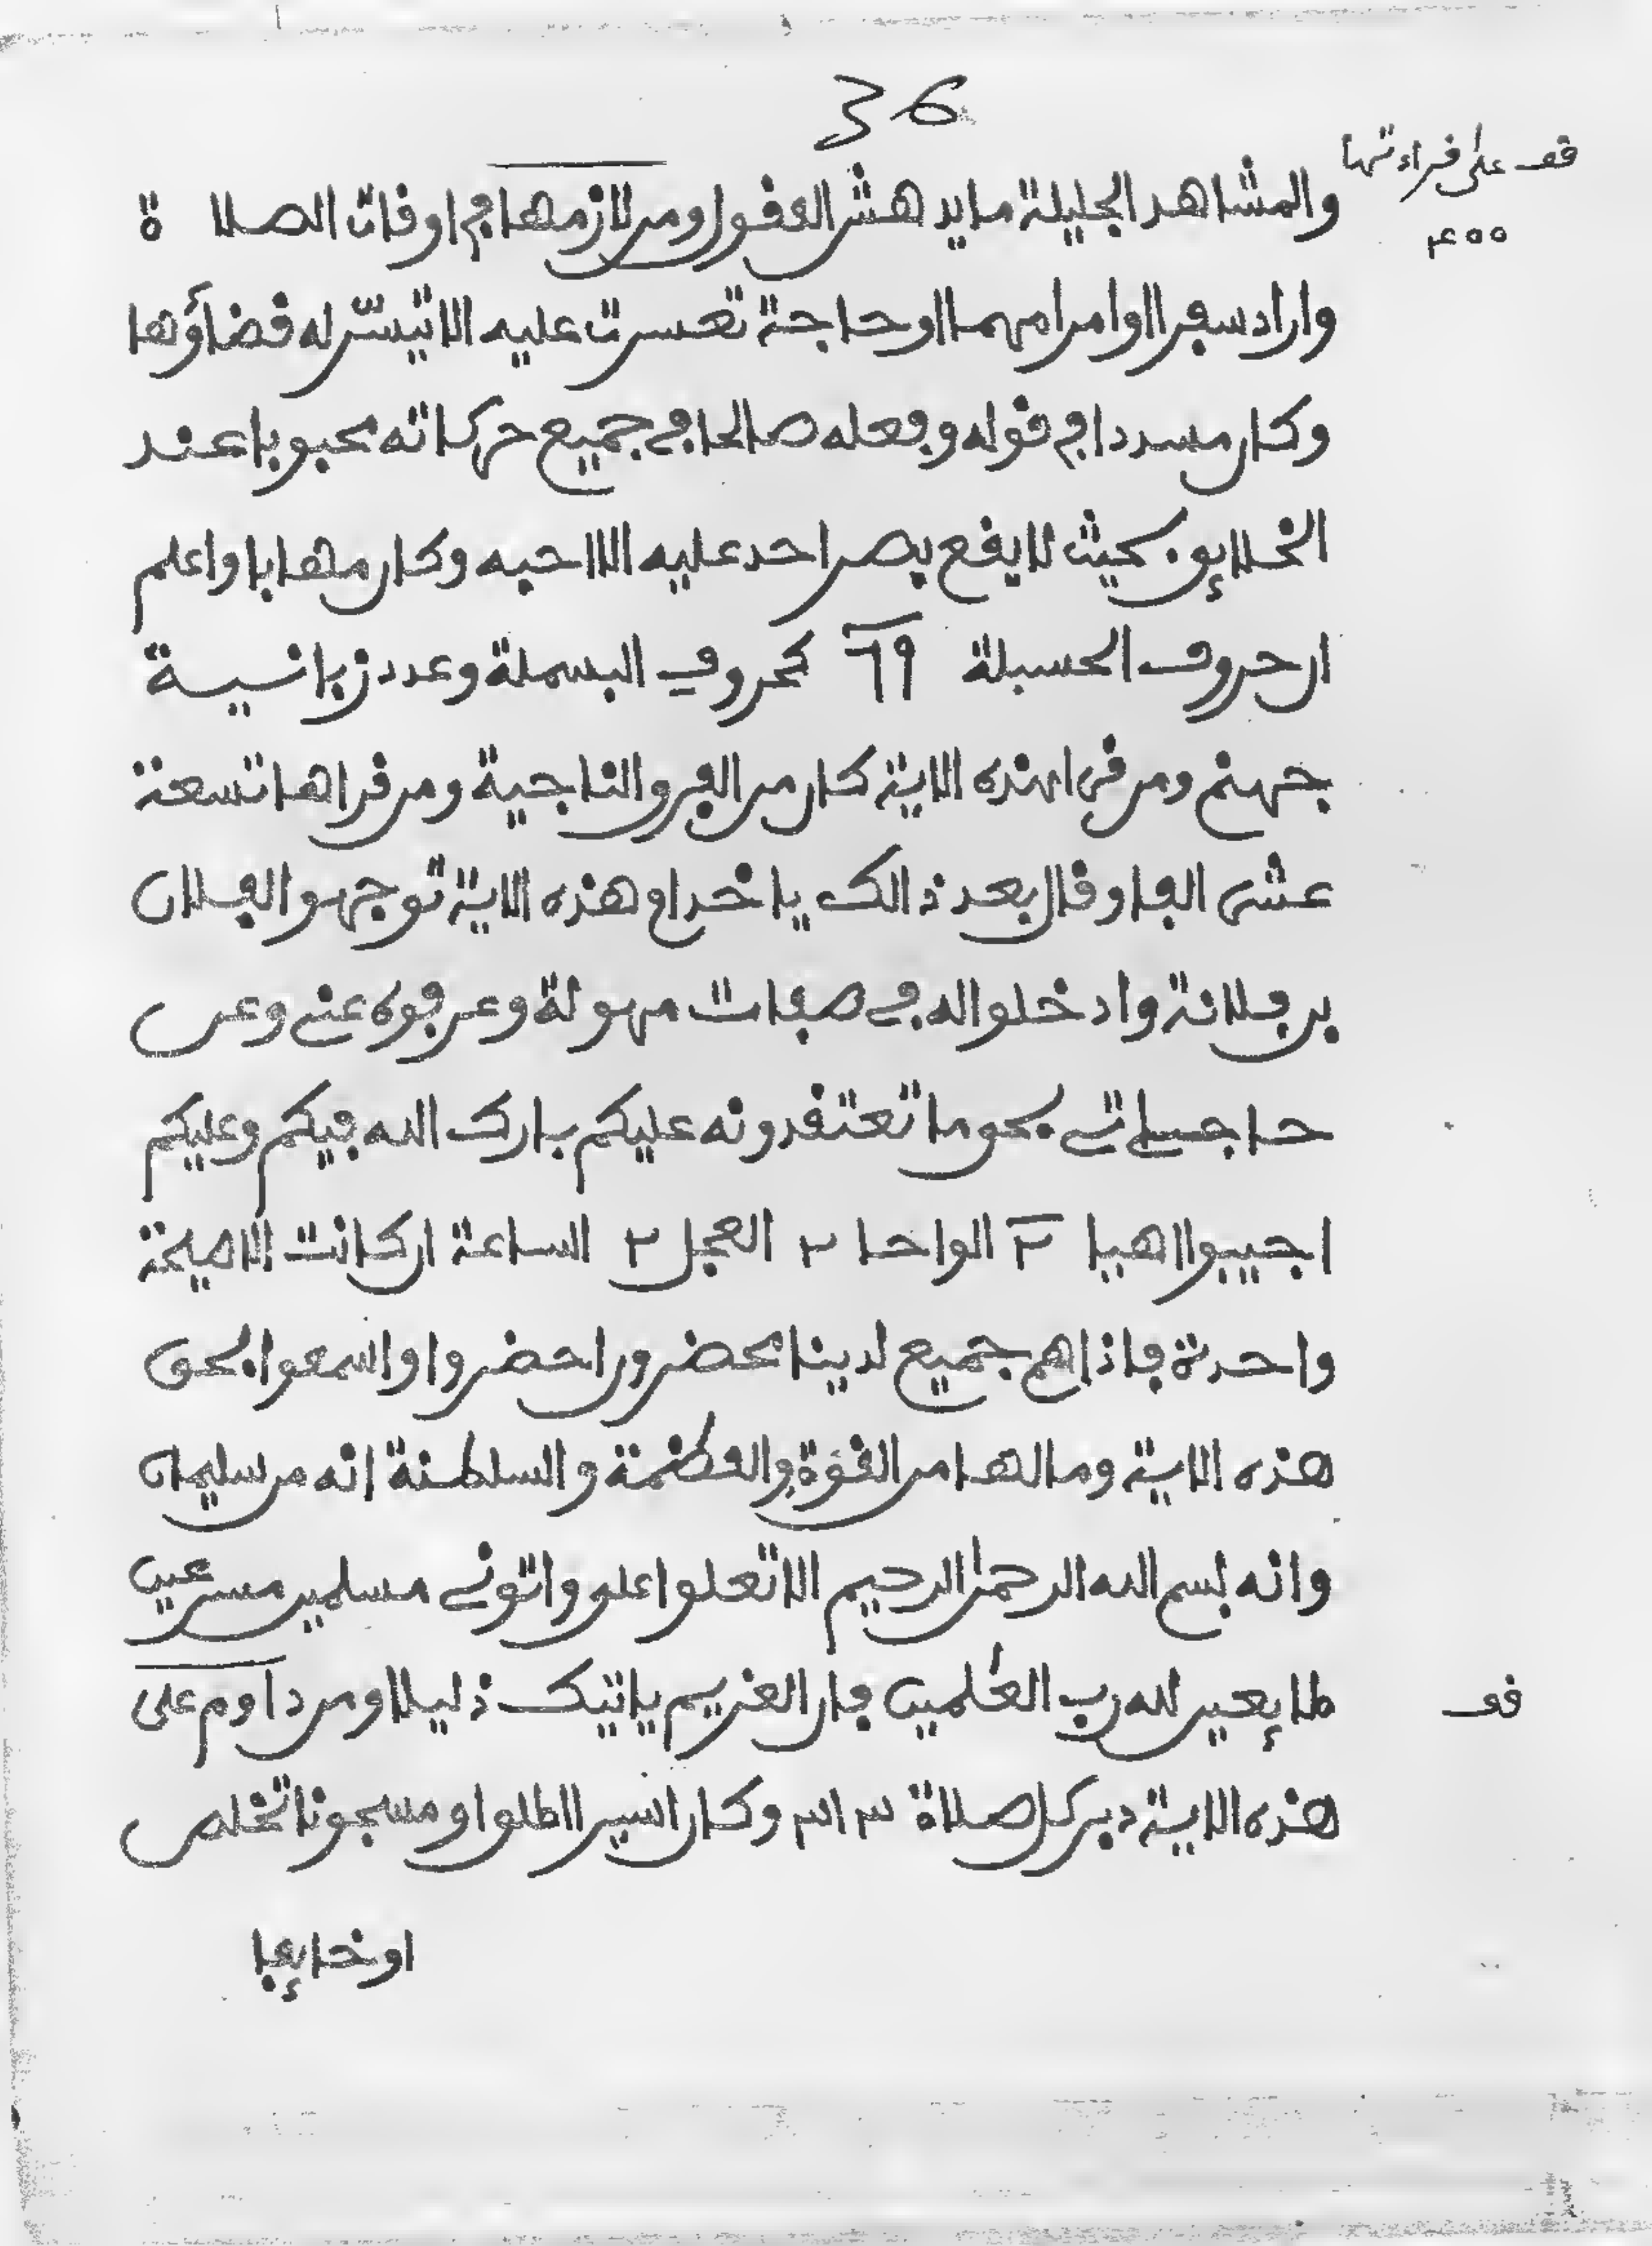 36
قف على قراءتها
٤٠٠
والمشاهد الجليلة ما يدهش العقول ومن لازمها في اوقات الصلاة
واراد سفرا او امرا مهما او حاجة تعسرت عليه الا تيسر له قضاؤها
وكان مسددا في قوله وفعله صالحا في جميع حركاته محبوبا عند
الخلايق بحيث لا يقع بصر احد عليه الا احبه وكان مهابا واعلم
ان حروف الحسبلة ١٩ كحروف البسملة وعدد زبانية
جهنم ومن قرا هذه الاية كان من الفرق الناجية ومن قراها تسعة
عشر الفا وقال بعد ذالك يا خدام هذه الاية توجهوا لفلان
بن فلانة وادخلوا له في صفات مهولة وعرفوه عني وعن
حاجاتي بحق ما تعتقدونه عليكم بارك الله فيكم وعليكم
اجيبوا اهيا ٢ الواحا ٢ العجل ٢ الساعة ان كانت الا صيحة
واحدة فاذا هم جميع لدينا محضرون احضروا واسمعوا بحق
هذه الاية وما لها من القوة والعظمة والسلطنة انه من سليمان
وانه بسم الله الرحمن الرحيم الا تعلوا علي واتوني مسلمين مسرعين
طايعين لله رب العلمين فان الغريم ياتيك ذليلا ومن داوم على
قف
هذه الاية دبر كل صلاة وكان اسيرا اطلق او مسجونا تخلص
او خايفا